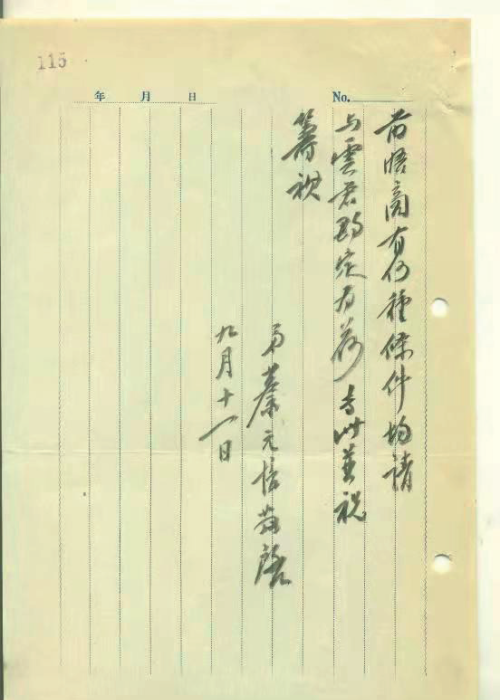 115
年 月 日
No.
晤商有何種條件均請
与雲君定為荷专此並祝
籌祺
弟蔡元培敬啓
九月十一日